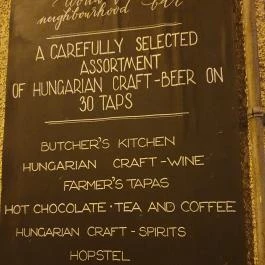 neighbourhood bar
A CAREFULLY SELECTED
ASSORTMENT
OF HUNGARIAN CRAFT-BEER ON
30 TAPS
BUTCHER'S KITCHEN
HUNGARIAN CRAFT-WINE
FARMER'S TAPAS
HOT CHOCOLATE · TEA AND COFFEE
HUNGARIAN CRAFT-SPIRITS
HOPSTEL